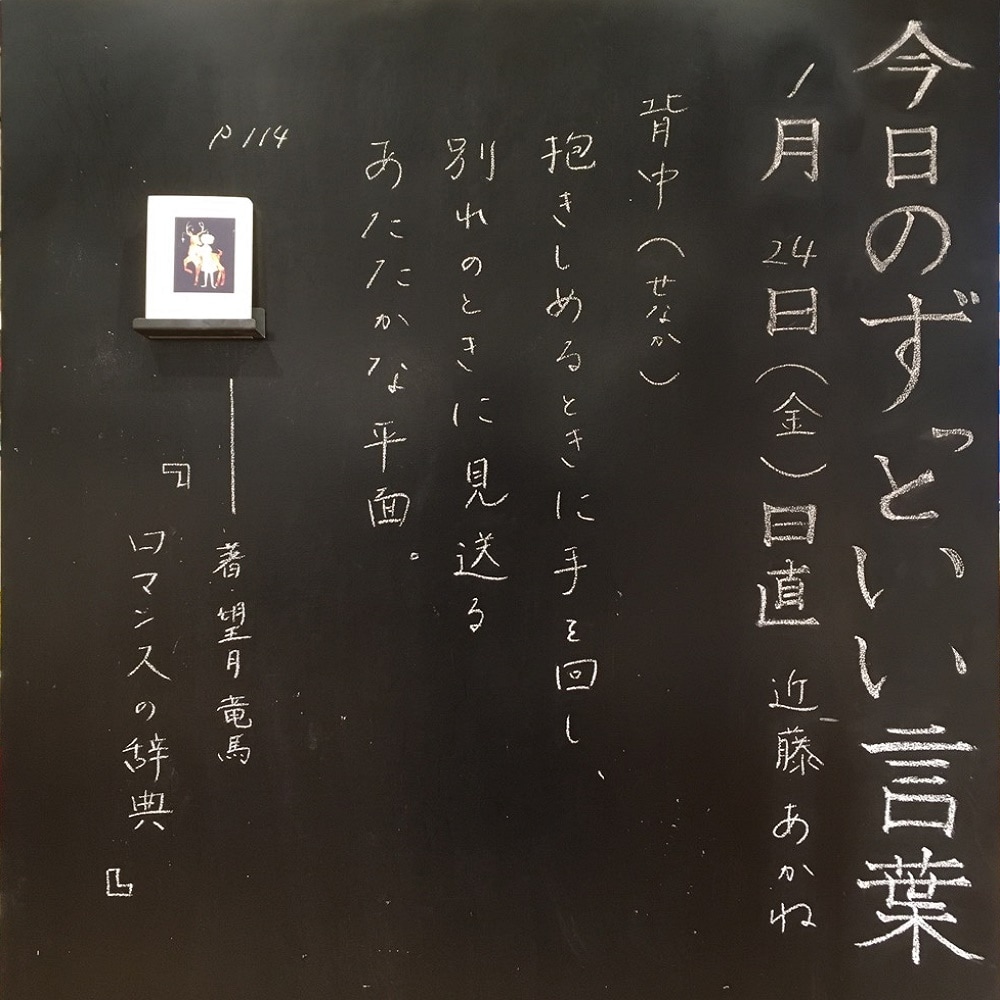 今日のずっといい言葉
1月24日(金)日直 近藤あかね
背中(せなか)
抱きしめるときに手を回し、
別れのときに見送る
あたたかな平面。
P114
著・望月竜馬
『ロマンスの辞典』